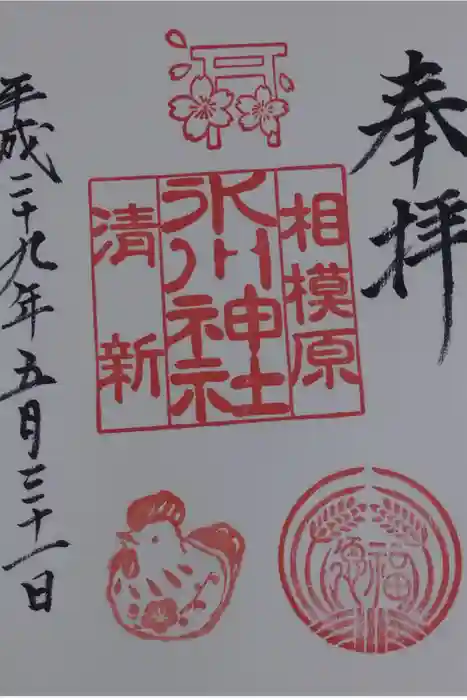 奉拝
相模原
氷川神社
清新
福
平成二十九年五月三十一日